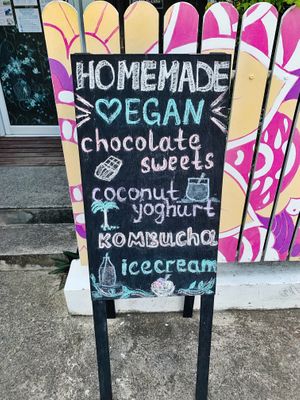 HOMEMADE
VEGAN
chocolate
sweets
coconut
yoghurt
KOMBUCHA
icecream